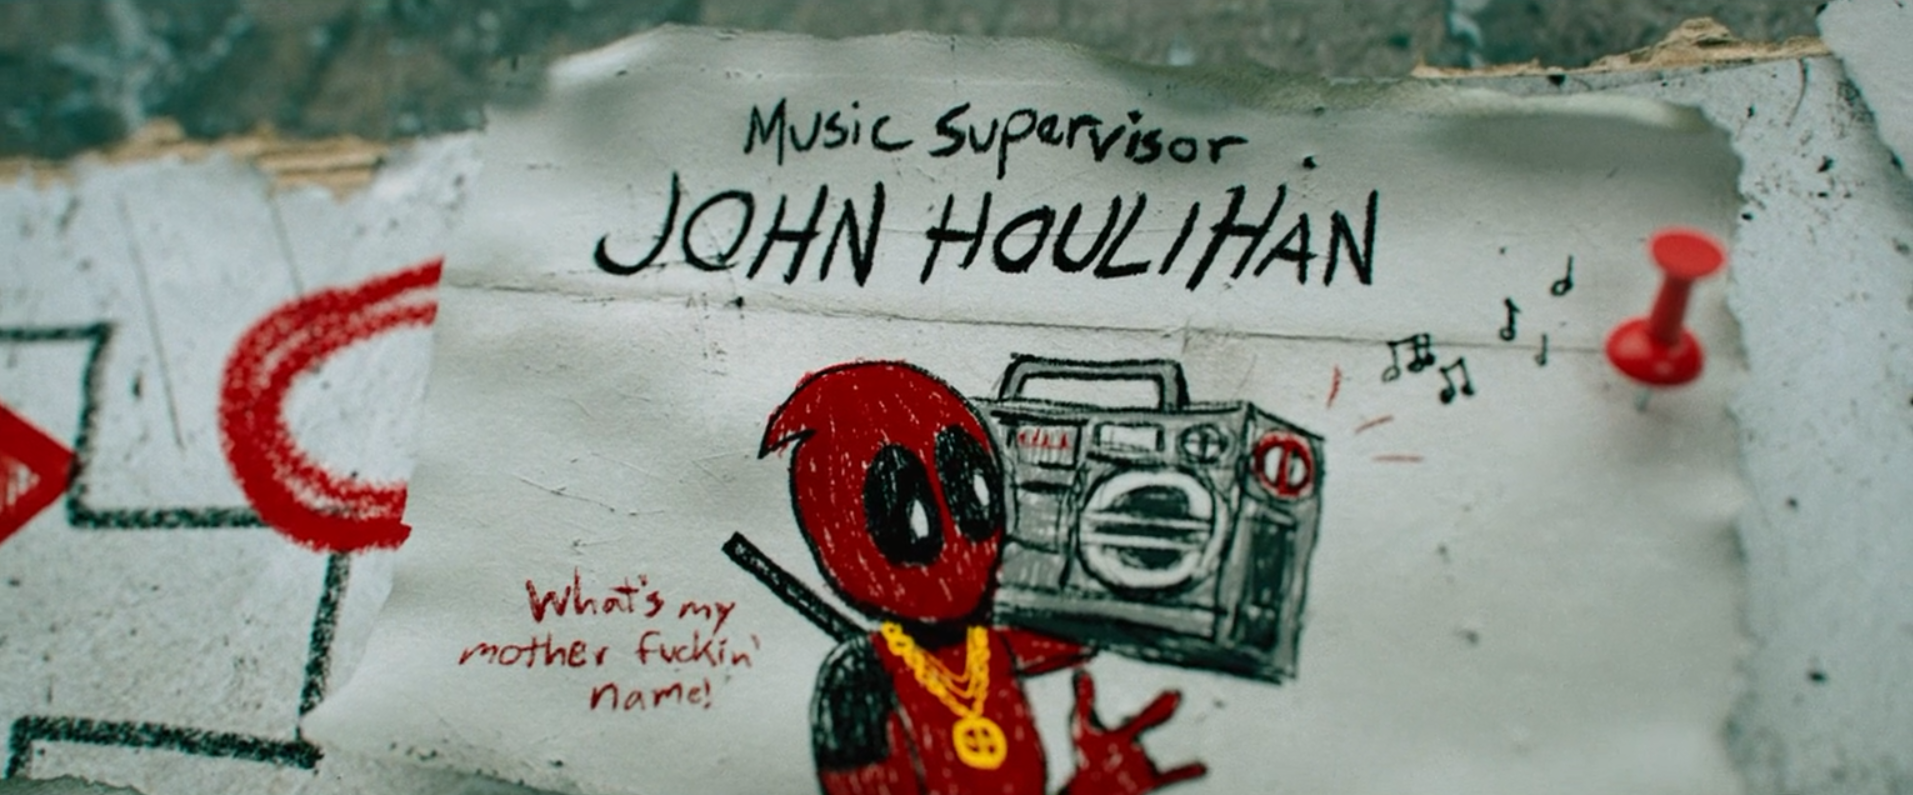 Music Supervisor
JOHN HOULIHAN
What's my
mother fuckin'
name!